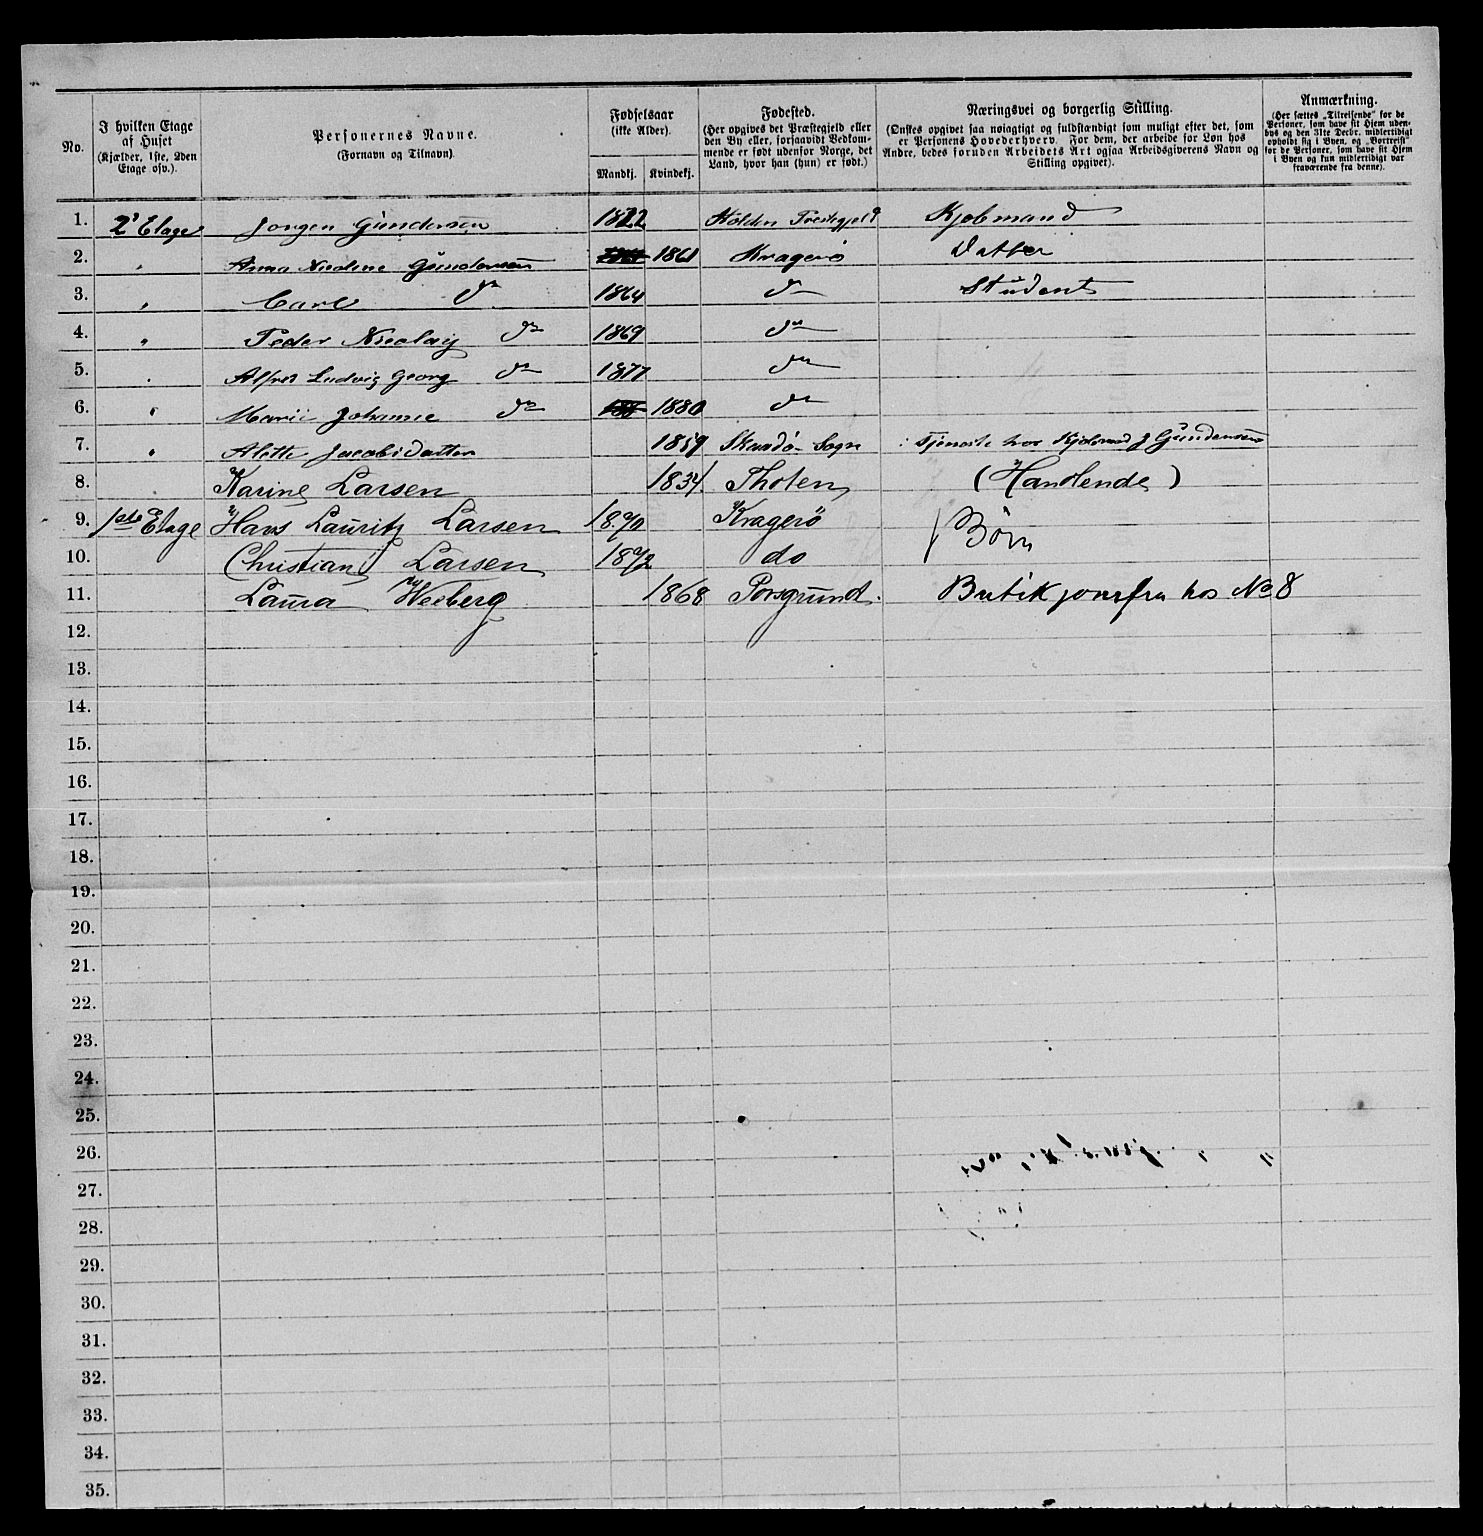 No. | I hvilken Etage af Huset (Kjælder, 1ste, 2den Etage osv.). | Personernes Navne. (Fornavn og Tilnavn) | Fødselsaar (ikke Alder). Mandkj. | Kvindekj. | Fødested. (Her opgives det Præstegjeld eller den By eller, forsaavidt Vedkommende er født udenfor Norge, det Land, hvor han (hun) er født.) | Næringsvei og borgerlig Stilling. (Ønskes opgivet saa nøiagtigt og fuldstændigt som muligt efter det, som er Personens Hovederhverv. For dem, der arbeide for Løn hos Andre, bedes foruden Arbeidets Art ogsaa Arbeidsgiverens Navn og Stilling opgivet). | Anmærkning. (Her sættes „Tilreisende" for de Personer, som have sit Hjem udenbys og den 31te Decbr. midlertidigt opholdt sig i Byen, og „Bortreist" for de Personer, som have sit Hjem i Byen og kun midlertidigt var fraværende fra denne).
1. 2' Etage Jorgen Gundersen 1822 Holden Præstegjeld Kjobmand
2. " Anna Nicoline Gundersen 1861 Kragerö Datter
3. " Carl do 1864 do Student
4. " Peder Nicolay do 1869 do
5. " Alfred Ludvig Georg do 1877 do
6. " Marie Johanne do 1880 do
7. " Alette Jacobsdatter 1859 Skaadö Sogn Tjeneste hos Kjobmd J Gundersen
8. Karine Larsen 1834. Tholen (Handlende)
9. 1ste Etage Hans Lauritz Larsen 1870 Kragerö } Börn
10. Christian Larsen 1872 do
11. Laura Weeberg 1868 Porsgrund. Butikjomfru hos No 8
12.
13.
14.
15.
16.
17.
18.
19.
20.
21.
22.
23.
24.
25.
26.
27.
28.
29.
30.
31.
32.
33.
34.
35.